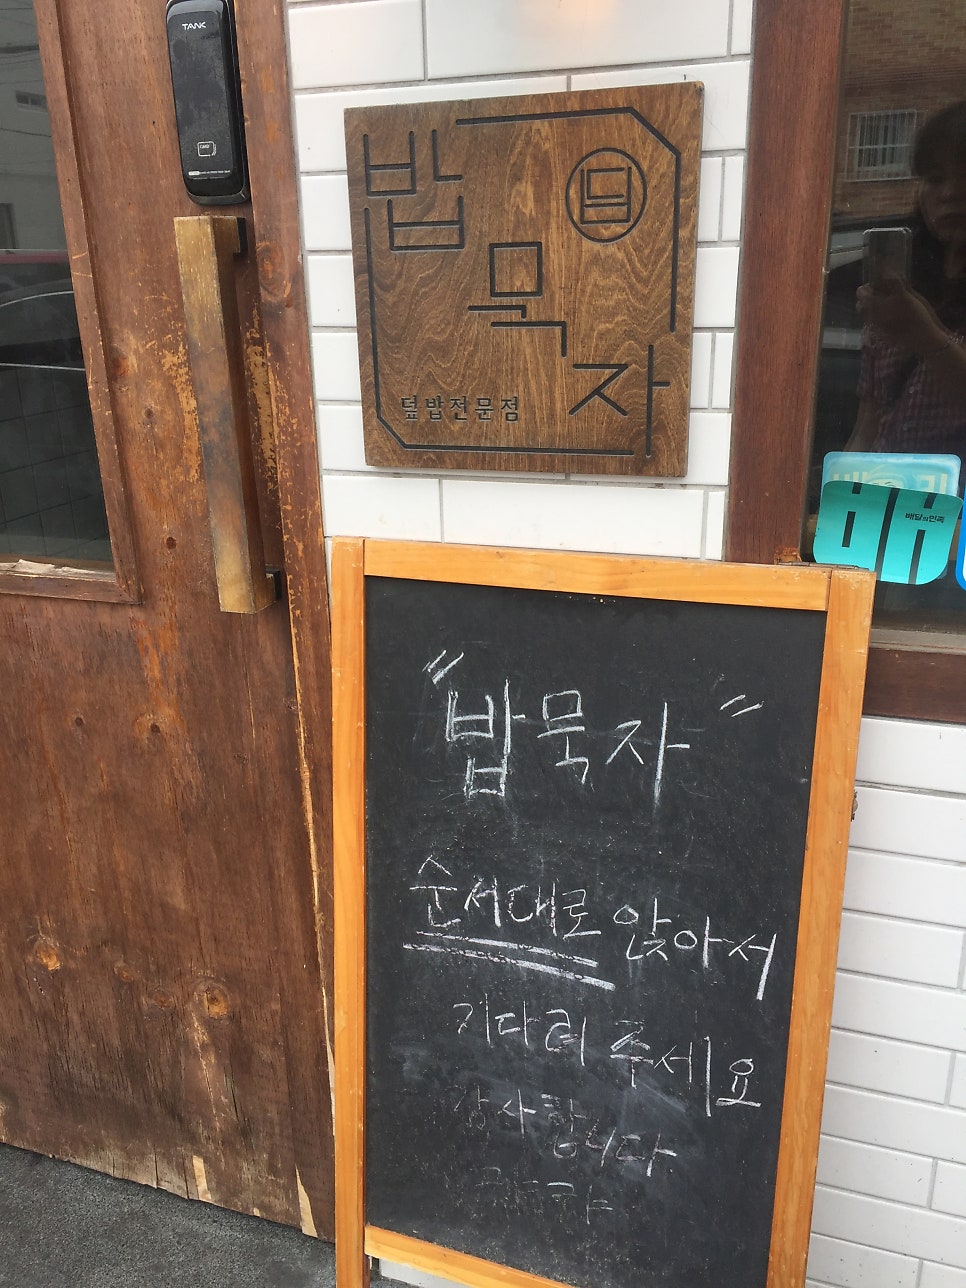 TANK
밥
묵
자
덮밥전문점
배달의민족
"밥묵자"
순서대로 앉아서
기다려 주세요
감사합니다